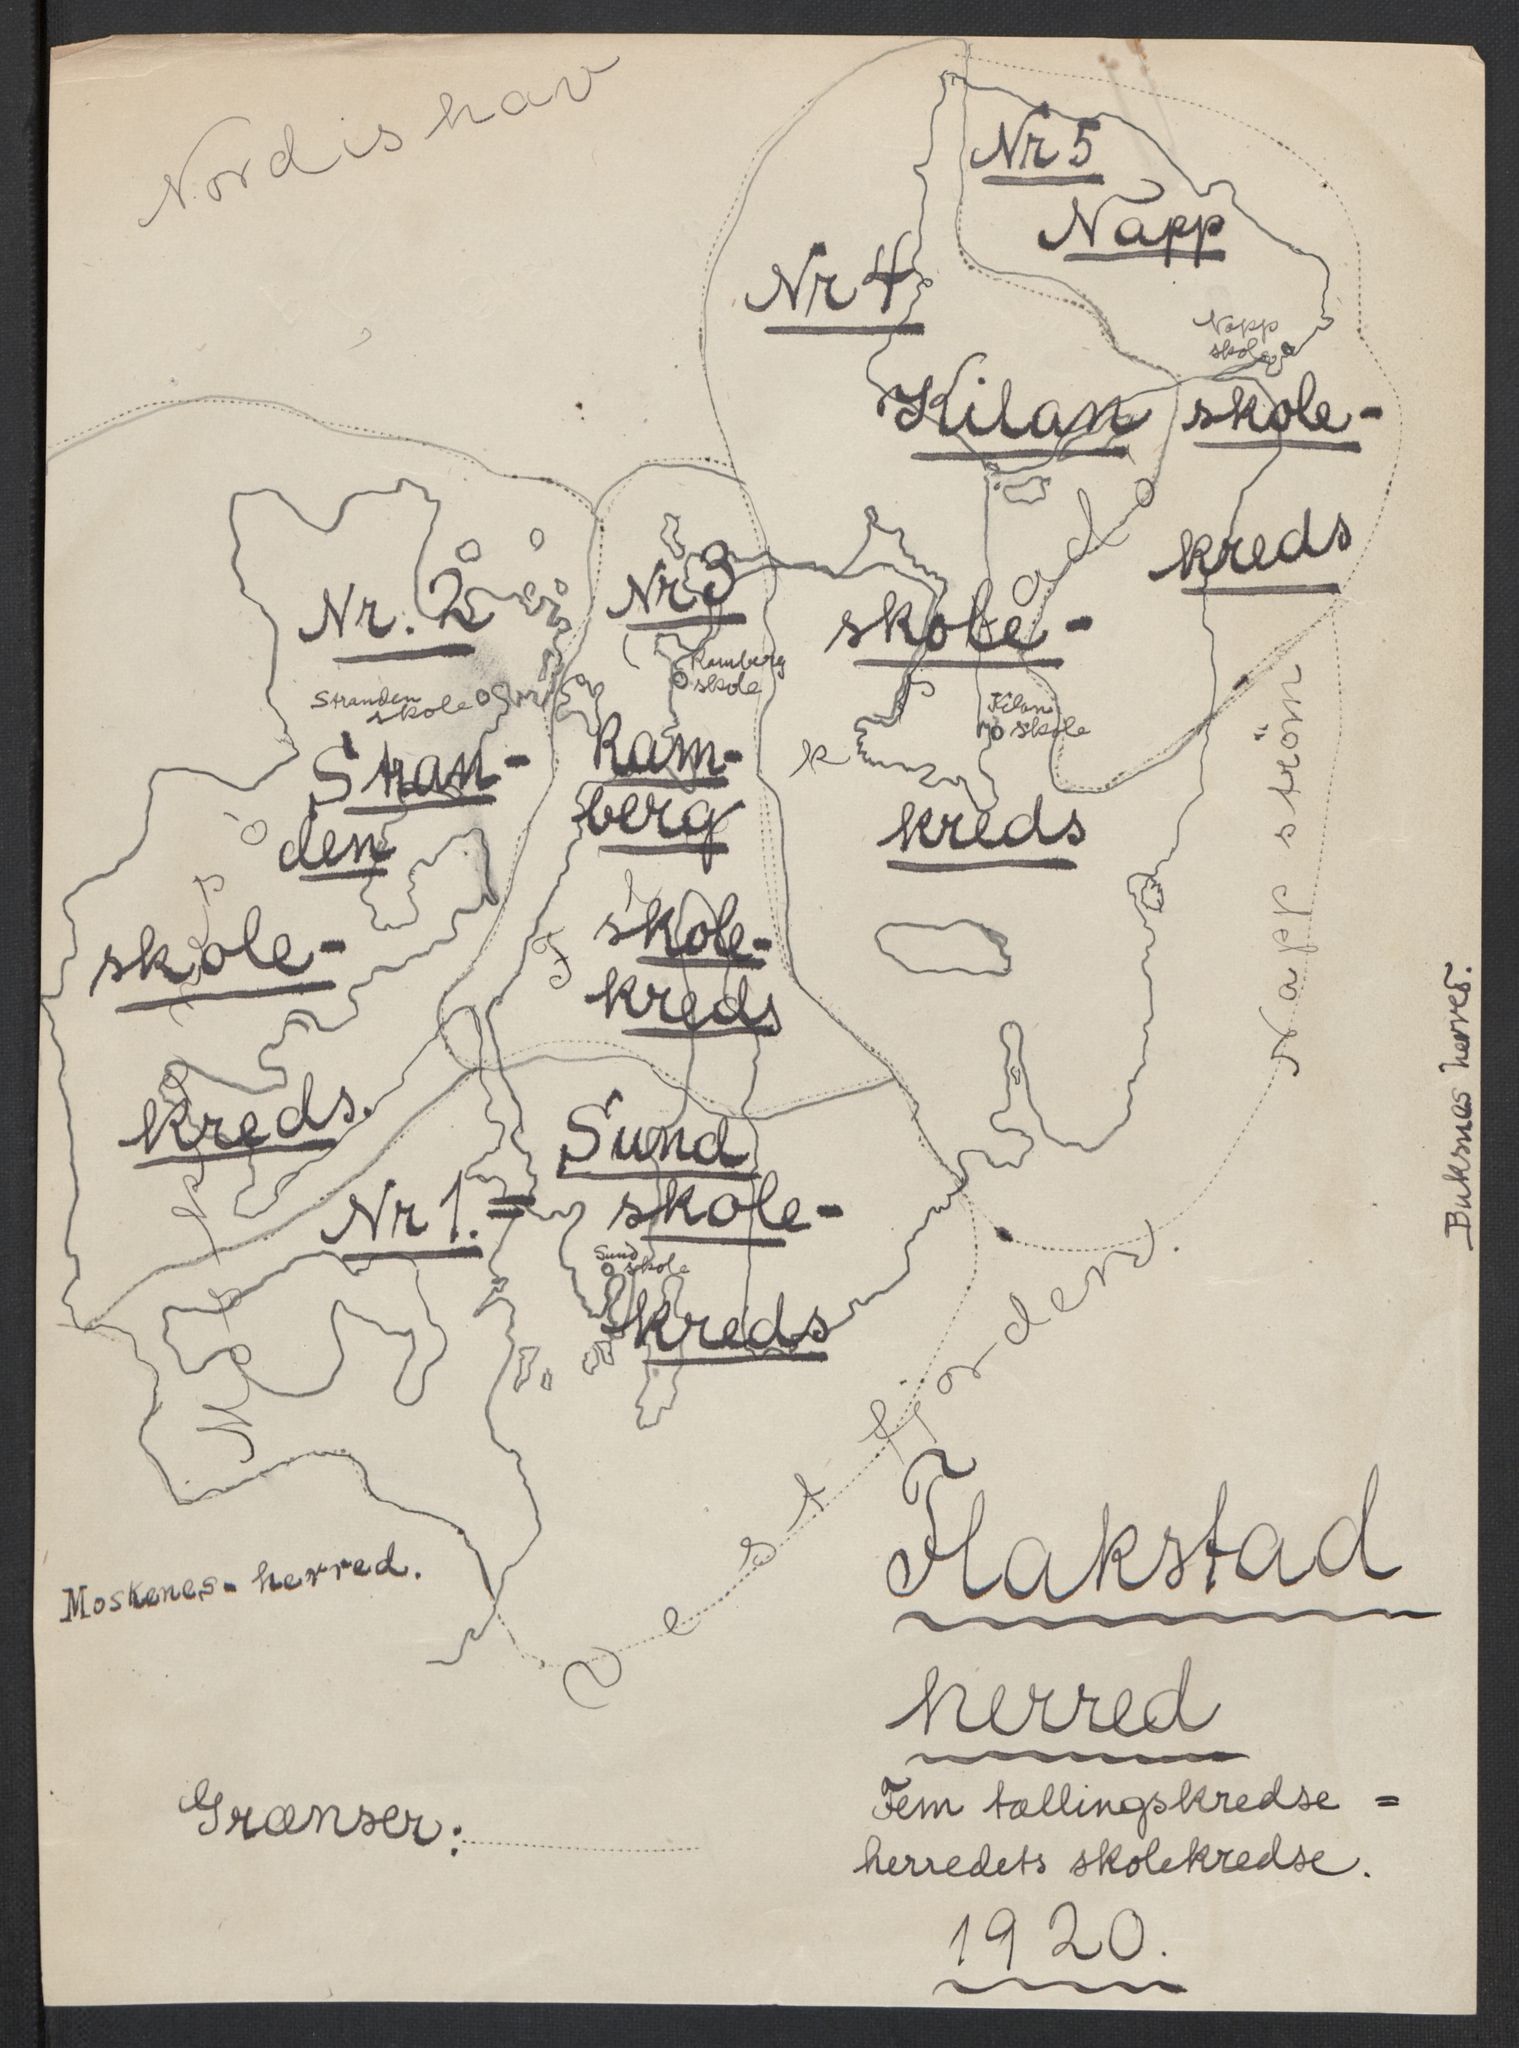 Nordishav
Nr 5
Napp
Napp
skole
skole-
kreds
Nr 4
Kilan
skole-
kreds
Kilan
skole
Nr 3
Ramberg
skole
Ram-
berg
skole-
kreds
Nr. 2
Stranden
skole
Stran-
den
skole-
kreds.
Nr 1. =
Sund
skole-
kreds
Sund
skole
Nappström
Vestfjorden.
Buksnes herred.
Moskenes-herred.
Flakstad
herred
Fem tællingskredse =
herredets skolekredse.
1920.
Grænser: